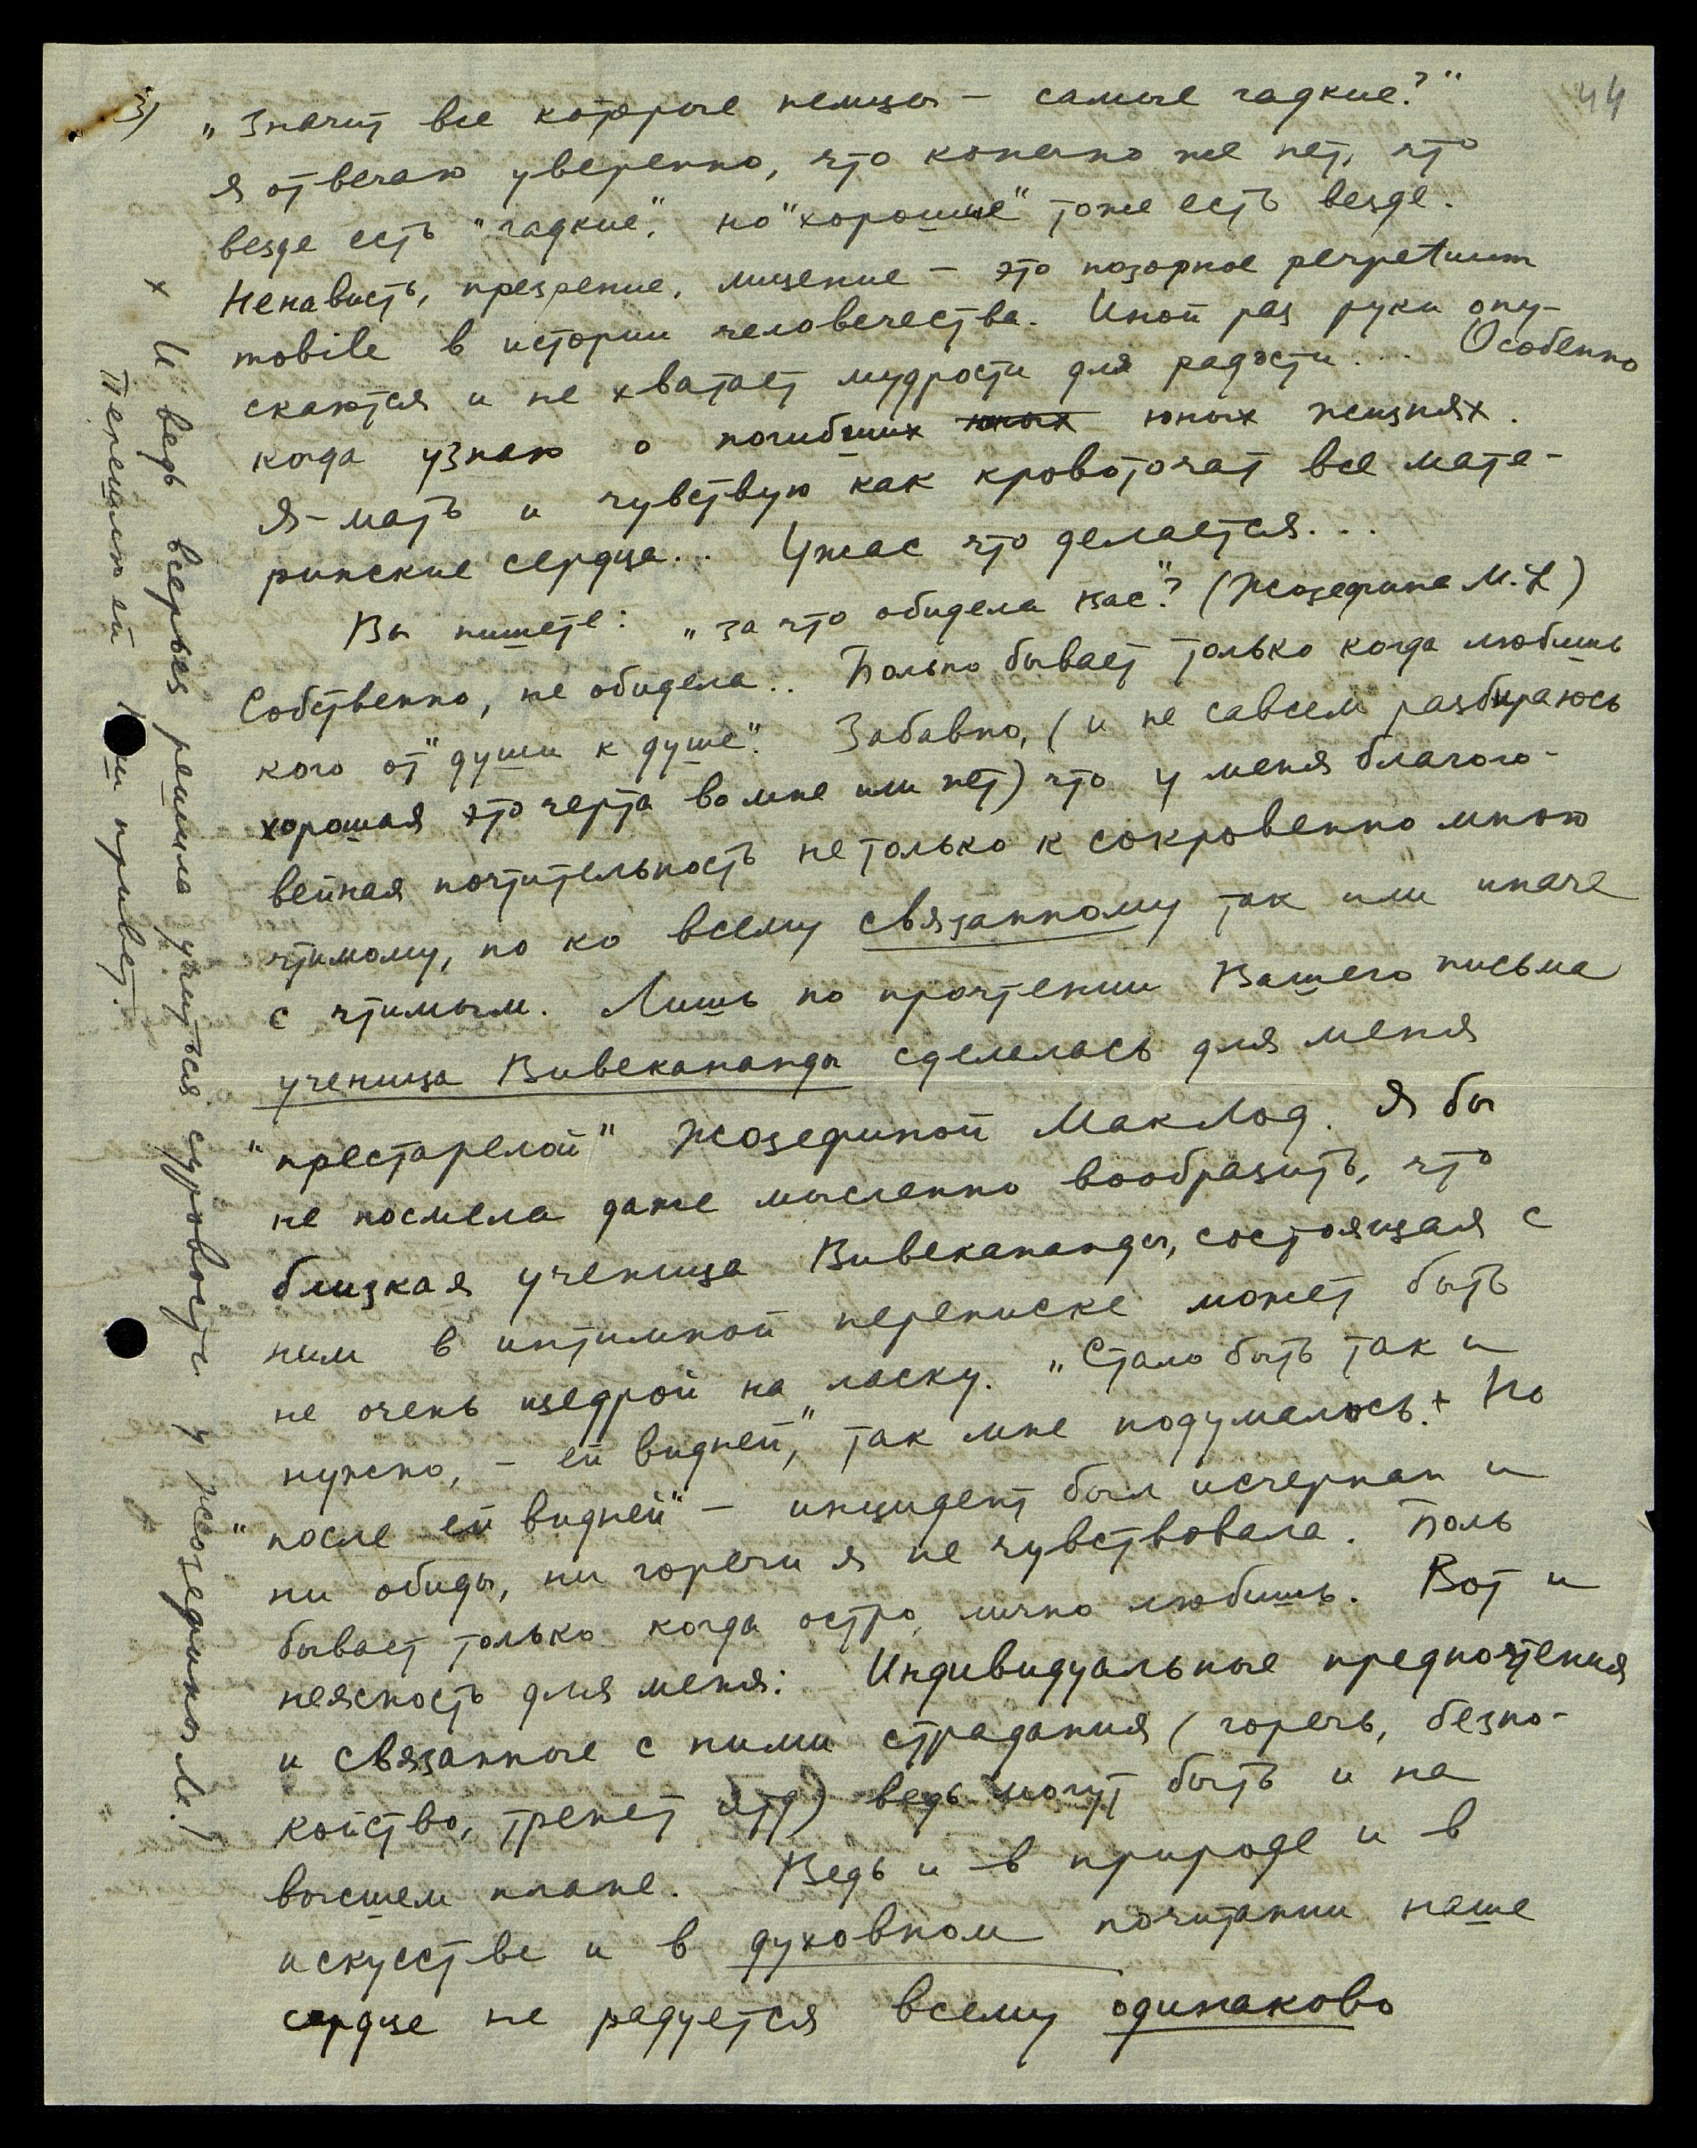 3)
44
„Значит все которые немцы – самые гадкие?"
я отвечаю уверенно, что конечно же нет, что
везде есть "гадкие", но "хорошие" тоже есть везде.
Ненависть, презрение, мщение – это позорное perpetuum
mobile в истории человечества. Иной раз руки опу-
скаются и не хватает мудрости для радости... Особенно
когда узнаю о погибших юных юных жизнях.
Я – мать и чувствую как кровоточат все мате-
ринские сердца... Ужас что делается...
Вы пишете: „за что обидела вас"? (Жозефине М.Л)
Собственно, не обидела.. Больно бывает только когда любишь
кого от "души к душе". Забавно, (и не савсем разбираюсь
хорошая это черта во мне или нет) что у меня благого-
вейная почтительность не только к сокровенно мною
чтимому, но ко всему связанному так или иначе
с чтимым. Лишь по прочтении Вашего письма
ученица Вивекананды сделалась для меня
"престарелой" Жозефиной МакЛод. Я бы
не посмела даже мысленно вообразить, что
близкая ученица Вивекананды, состоящая с
ним в интимной переписке может быть
не очень щедрой на ласку. „Стало быть так и
нужно, – ей видней", так мне подумалось.+ Но
"после ей видней" – инцидент был исчерпан и
ни обиды, ни горечи я не чувствовала. Боль
бывает только когда остро, лично любишь. Вот и
неясность для меня: Индивидуальные предпочтения
и связанные с ними страдания (горечь, безпо-
койство, трепет итд) ведь могут быть и на
высшем плане. Ведь и в природе и в
искусстве и в духовном почитании наше
сердце не радуется всему одинаково
x И ведь всерьез решила учиться суровости у Жозефины М.!
Перешлю ей Ваш привет.